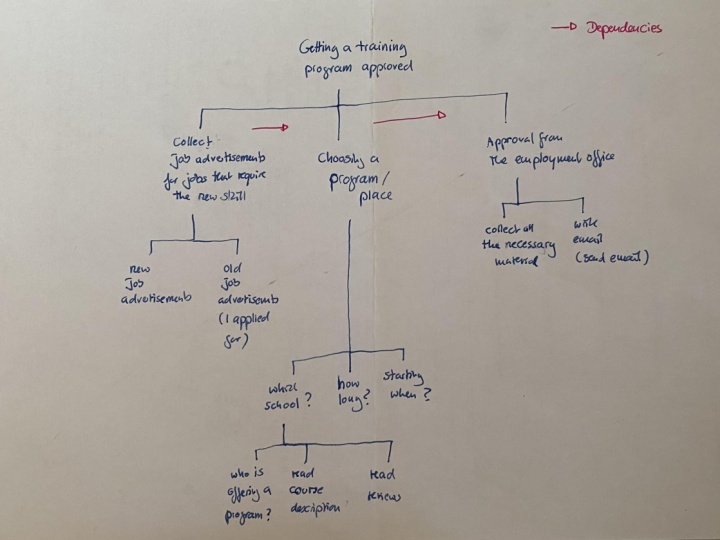 Dependencies
Getting a training
program approved
Collect
Job advertisements
for jobs that require
the new skill
Choosing a
program/
place
Approval from
the employment office
new
Job
advertisements
old
Job
advertisements
(I applied
for)
collect all
the necessary
material
write
email
(send email)
which
school?
how
long?
starting
when?
who is
offering a
program?
read
course
description
read
reviews